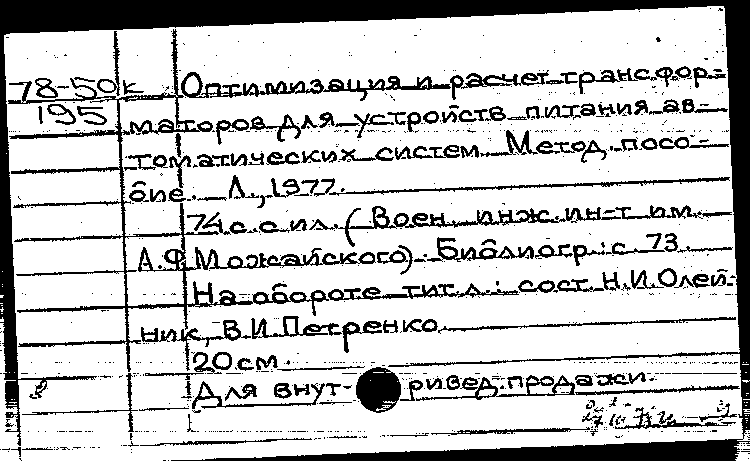 78-50 к Оптимизация и расчет трансфор-
195 маторов для устройств питания ав-
томатических систем. Метод. посо-
бие. Л., 1977.
74 с. с ил. (Воен. инж. ин-т им.
А.Ф. Можайского). Библиогр.: с. 73.
На обороте тит. л.: сост. Н.И. Олей-
ник, В.И. Петренко.
20 см.
Для внут- ривед. продажи.